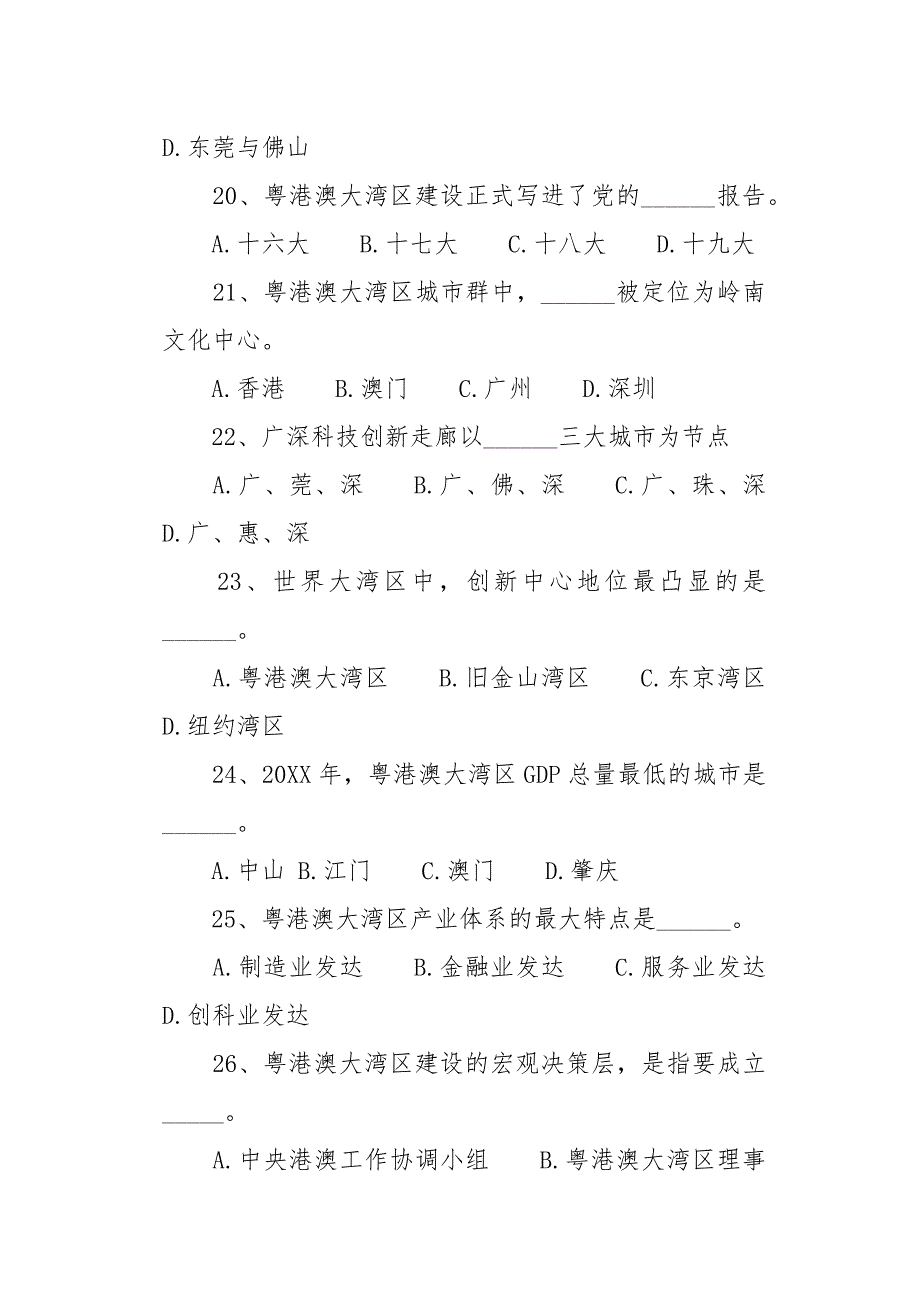 D.东莞与佛山
20、粤港澳大湾区建设正式写进了党的______报告。
A.十六大 B.十七大 C.十八大 D.十九大
21、粤港澳大湾区城市群中，______被定位为岭南
文化中心。
A.香港 B.澳门 C.广州 D.深圳
22、广深科技创新走廊以______三大城市为节点
A.广、莞、深 B.广、佛、深 C.广、珠、深
D.广、惠、深
23、世界大湾区中，创新中心地位最凸显的是
______。
A.粤港澳大湾区 B.旧金山湾区 C.东京湾区
D.纽约湾区
24、20XX年，粤港澳大湾区GDP总量最低的城市是
______。
A.中山 B.江门 C.澳门 D.肇庆
25、粤港澳大湾区产业体系的最大特点是______。
A.制造业发达 B.金融业发达 C.服务业发达
D.创科业发达
26、粤港澳大湾区建设的宏观决策层，是指要成立
_____。
A.中央港澳工作协调小组 B.粤港澳大湾区理事